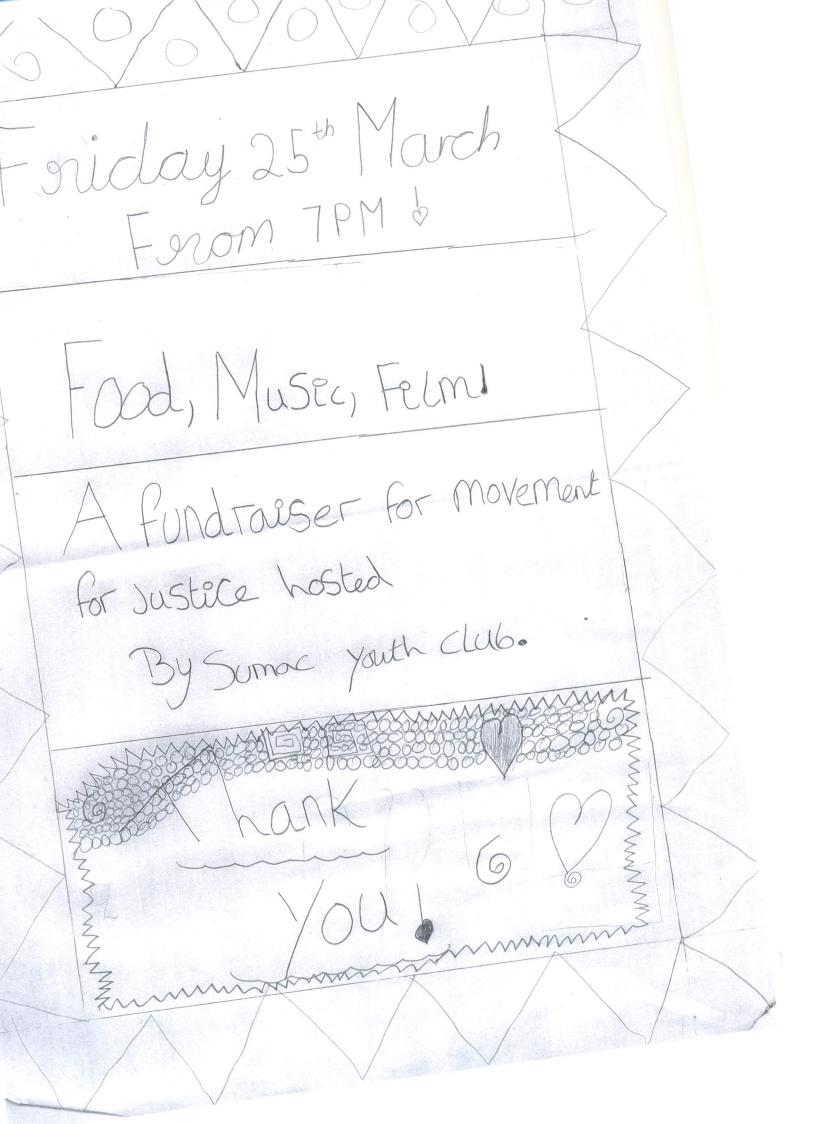 Friday 25th March
From 7PM!
Food, Music, Film!
A fundraiser for movement
for Justice hosted
By Sumac youth club.
Thank
You!